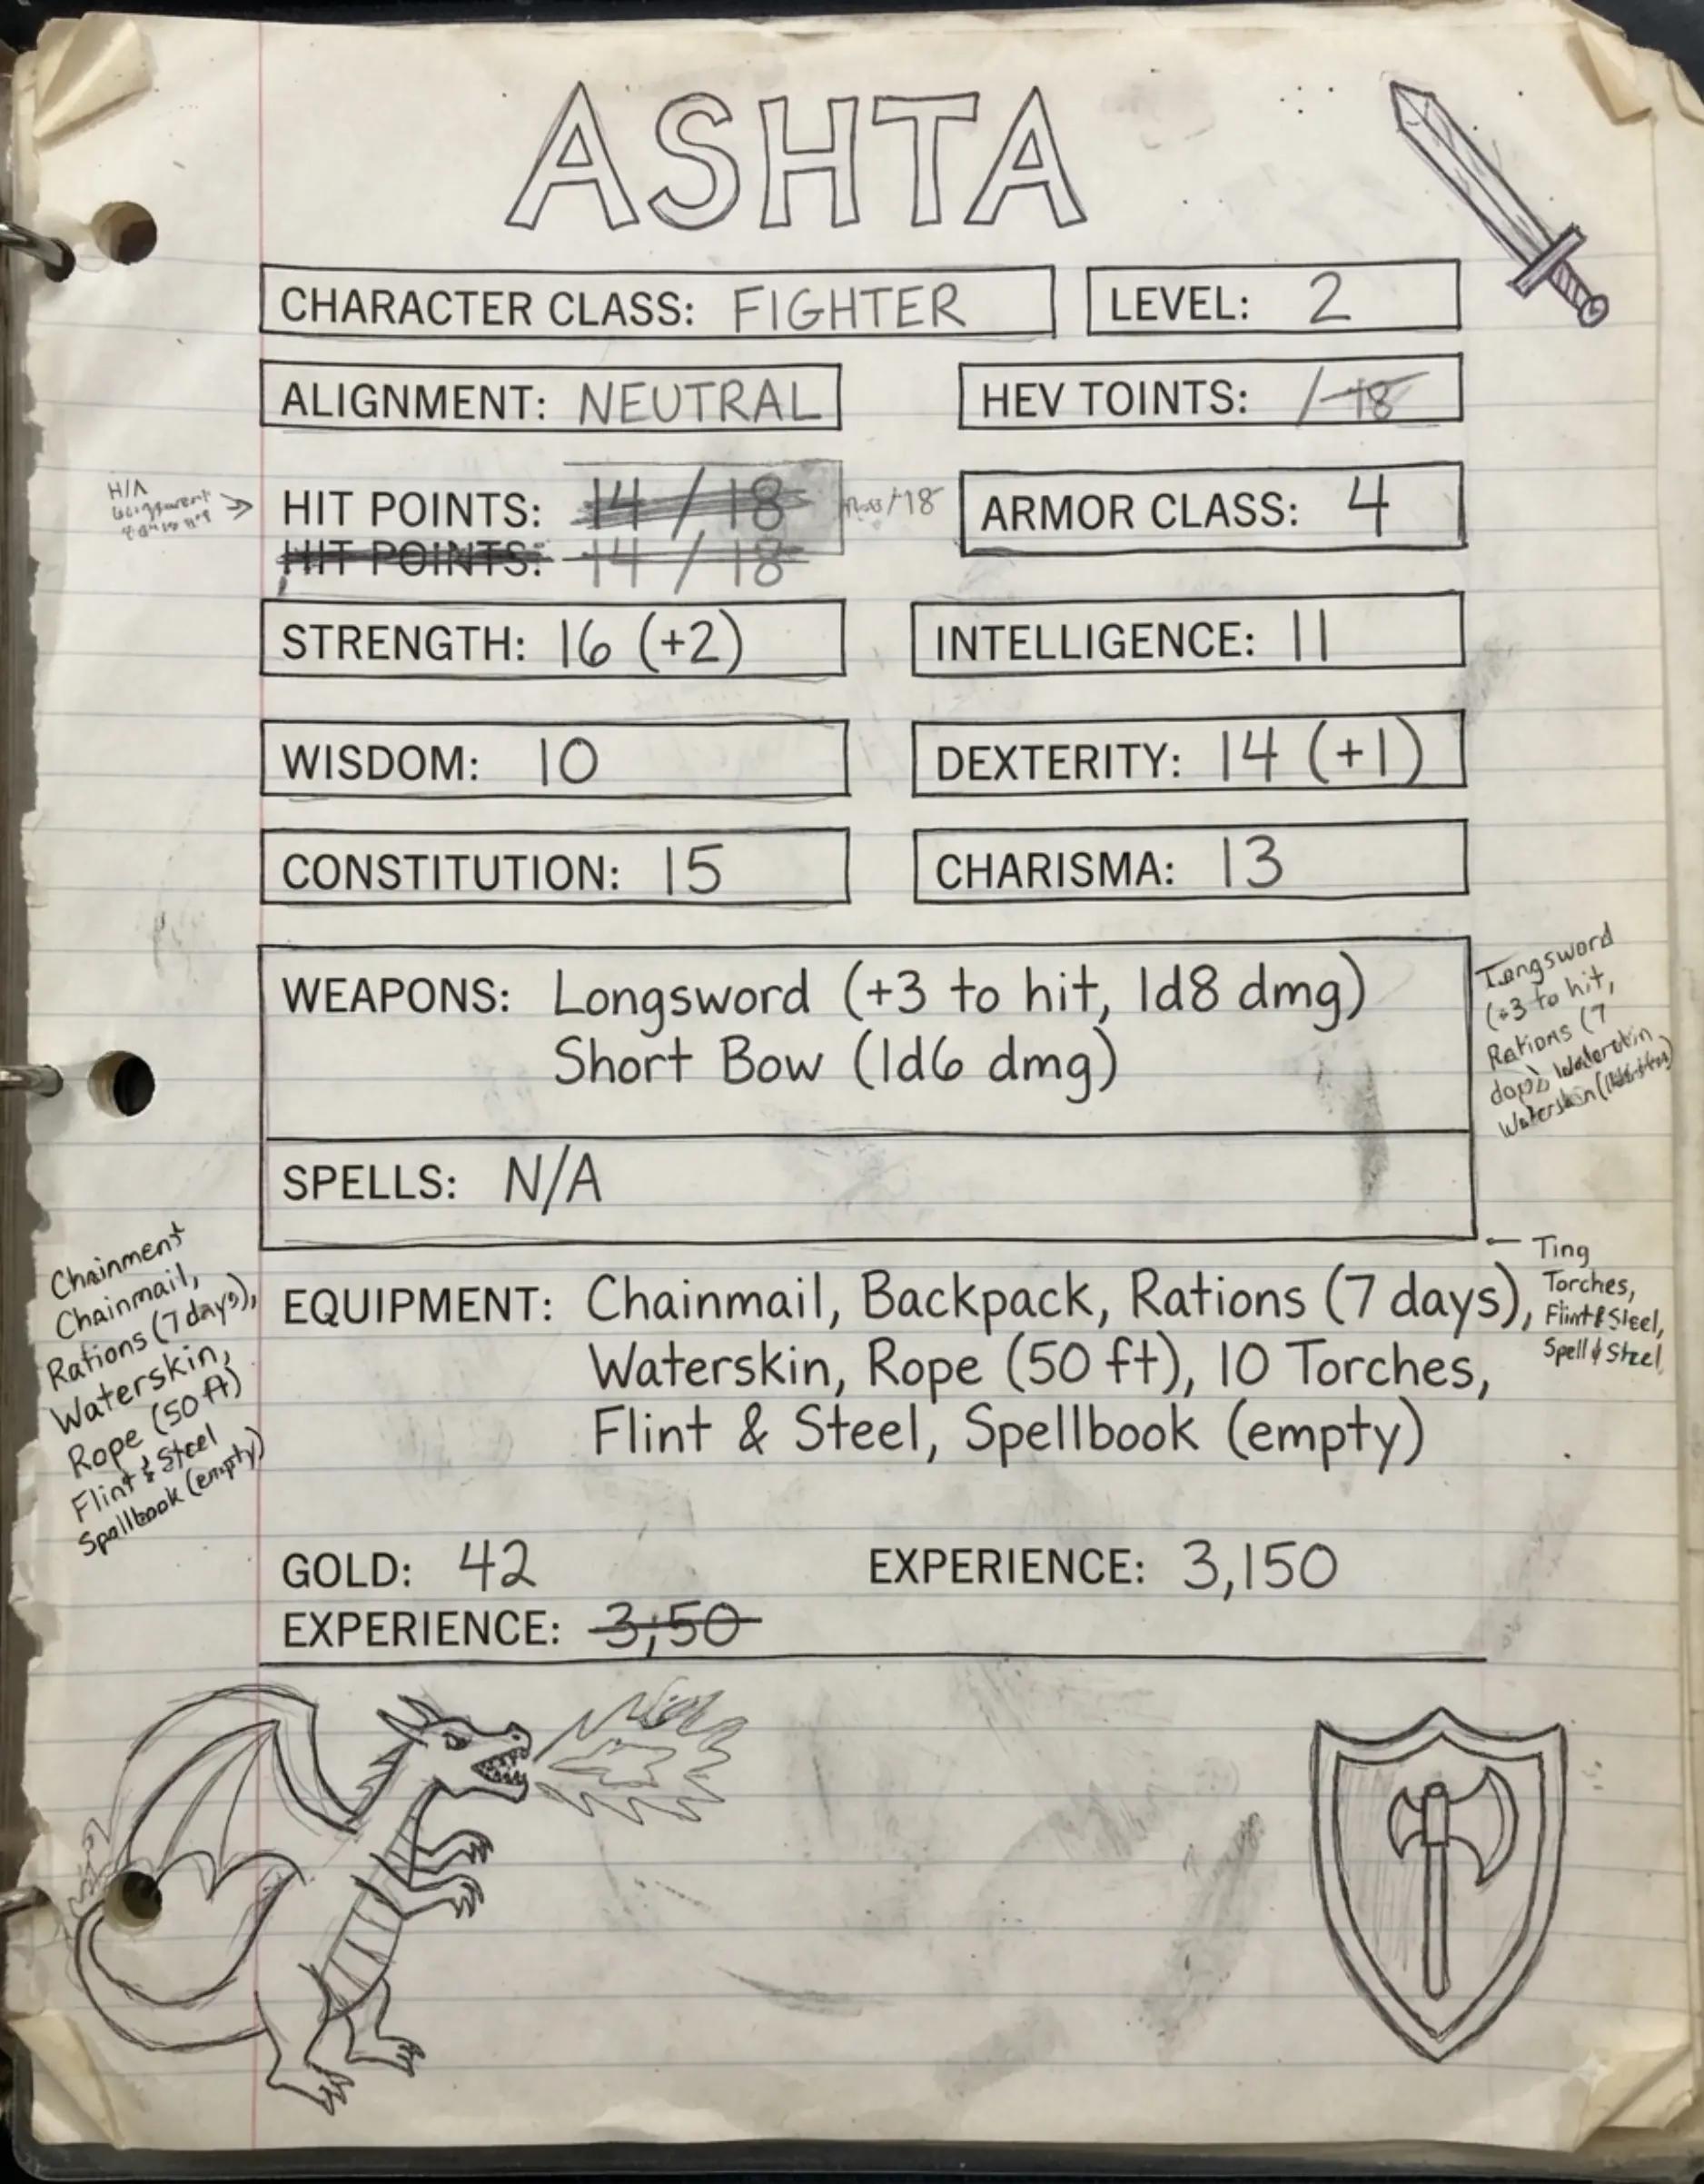 ASHTA
CHARACTER CLASS: FIGHTER
LEVEL: 2
ALIGNMENT: NEUTRAL
HEV TOINTS: /18
H/A
HIT POINTS: 14 / 18
/18
ARMOR CLASS: 4
HIT POINTS: 14 / 18
STRENGTH: 16 (+2)
INTELLIGENCE: 11
WISDOM: 10
DEXTERITY: 14 (+1)
CONSTITUTION: 15
CHARISMA: 13
WEAPONS: Longsword (+3 to hit, 1d8 dmg)
Short Bow (1d6 dmg)
Longsword
(+3 to hit,
Rations (7
Waterskin
SPELLS: N/A
Chainment
Chainmail,
Rations (7 days),
Waterskin,
Rope (50 ft)
Flint & Steel
Spallbook (empty)
EQUIPMENT: Chainmail, Backpack, Rations (7 days),
Waterskin, Rope (50 ft), 10 Torches,
Flint & Steel, Spellbook (empty)
Ting
Torches,
Flint & Steel,
Spell & Steel,
GOLD: 42
EXPERIENCE: 3,150
EXPERIENCE: 3,50